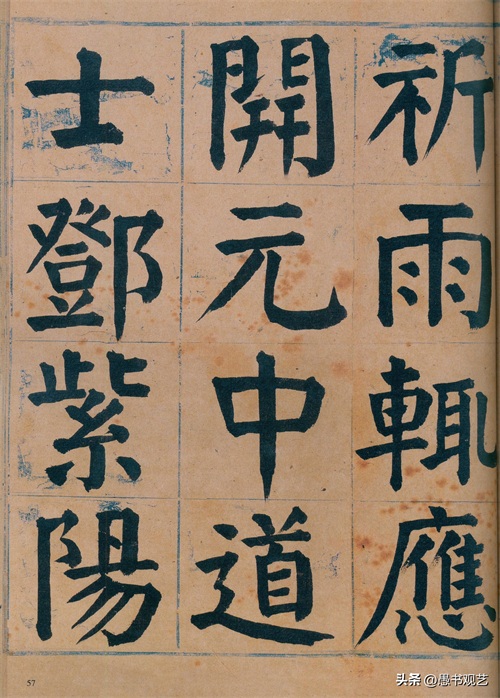 祈雨輒應
開元中道
士鄧紫陽
57
头条 @愚书观艺